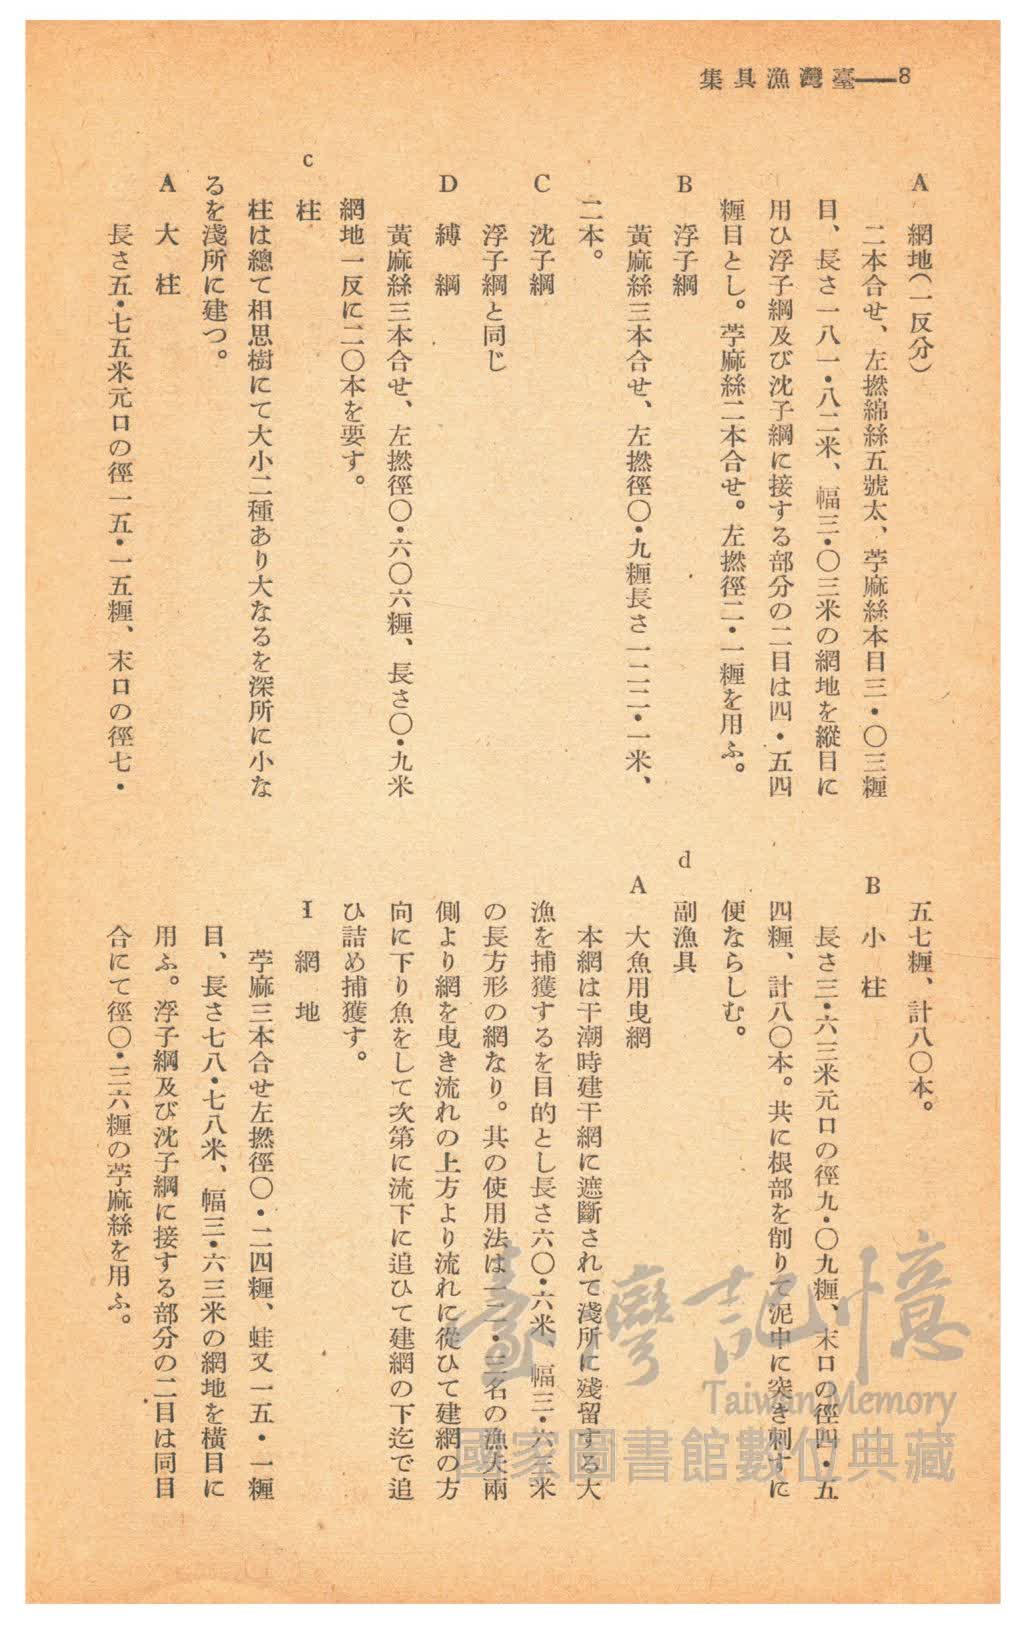 8——臺灣漁具集
A　網地（一反分）
二本合せ、左撚綿絲五號太、苧麻絲本目三・〇三糎
目、長さ一八一・八二米、幅三・〇三米の網地を縱目に
用ひ浮子綱及び沈子綱に接する部分の二目は四・五四
糎目とし。苧麻絲二本合せ。左撚徑二・一糎を用ふ。
B　浮子綱
黃麻絲三本合せ、左撚徑〇・九糎長さ一二二・一米、
二本。
C　沈子綱
浮子綱と同じ
D　縛　綱
黃麻絲三本合せ、左撚徑〇・六〇六糎、長さ〇・九米
網地一反に二〇本を要す。
c　柱
柱は總て相思樹にて大小二種あり大なるを深所に小な
るを淺所に建つ。
A　大　柱
長さ五・七五米元口の徑一五・一五糎、末口の徑七・
五七糎、計八〇本。
B　小　柱
長さ三・六三米元口の徑九・〇九糎、末口の徑四・五
四糎、計八〇本。共に根部を削りて泥中に突き刺すに
便ならしむ。
d　副漁具
A　大魚用曳網
本網は干潮時建干網に遮斷されて淺所に殘留する大
漁を捕獲するを目的とし長さ六〇・六米、幅三・六三米
の長方形の網なり。其の使用法は一二・三名の漁夫兩
側より網を曳き流れの上方より流れに從ひて建網の方
向に下り魚をして次第に流下に追ひて建網の下迄で追
ひ詰め捕獲す。
I　網　地
苧麻三本合せ左撚徑〇・二四糎、蛙又一五・一糎
目、長さ七八・七八米、幅三・六三米の網地を橫目に
用ふ。浮子綱及び沈子綱に接する部分の二目は同目
合にて徑〇・三六糎の苧麻絲を用ふ。
臺灣記憶
Taiwan Memory
國家圖書館數位典藏